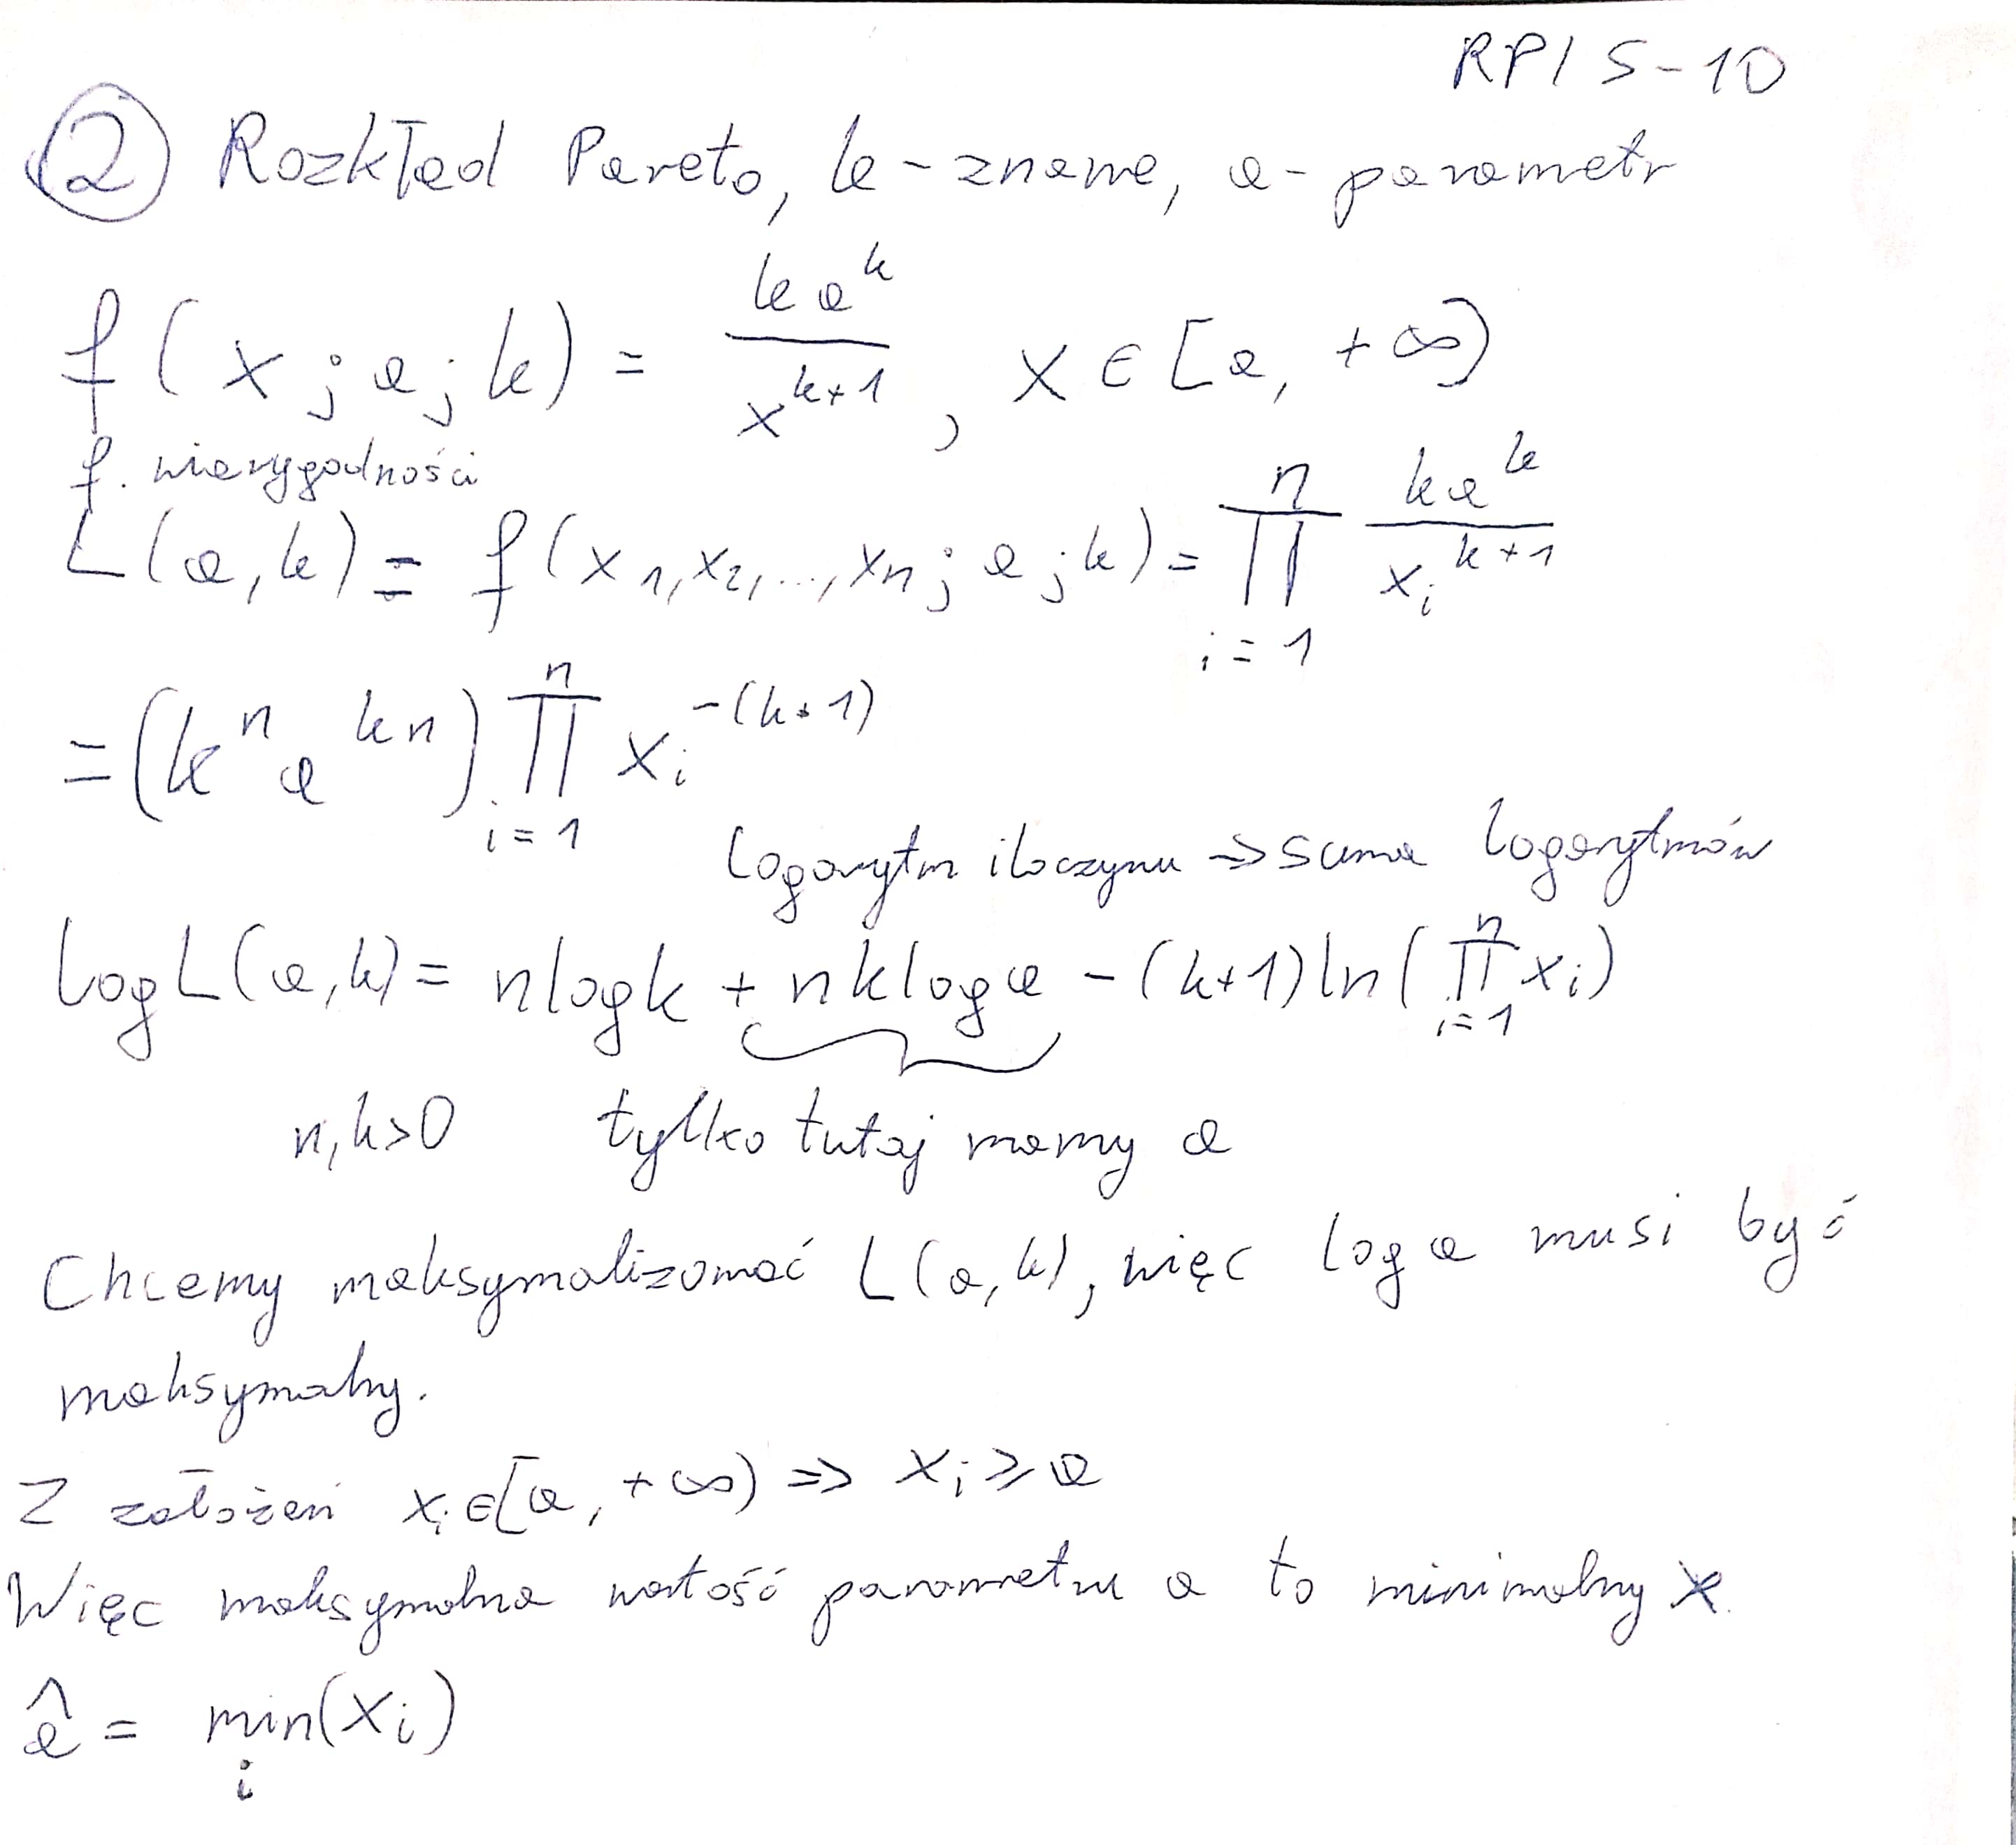 RPIS-10
② Rozkład Pareto, k-znane, a-parametr
f(x; a; k) = k a^k / x^(k+1), x ∈ [a, +∞)
f. wiarygodności
L(a, k) = f(x_1, x_2, ..., x_n; a; k) = ∏_{i=1}^{n} k a^k / x_i^(k+1)
= (k^n a^(kn)) ∏_{i=1}^{n} x_i^(-(k+1))
logarytm iloczynu => suma logarytmów
log L(a, k) = n log k + n k log a - (k+1) ln(∏_{i=1}^{n} x_i)
n, k > 0 tylko tutaj mamy a
Chcemy maksymalizować L(a, k), więc log a musi być
maksymalny.
Z założeń x_i ∈ [a, +∞) => x_i ⩾ a
Więc maksymalna wartość parametru a to minimalny x.
â = min_i (x_i)